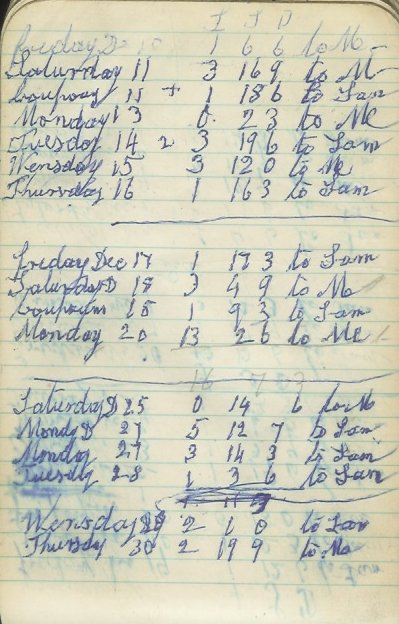 £ S D
Friday D 10 1 6 6 to M
Saturday 11 3 16 9 to M
11 + 1 18 6 to Sam
Monday 13 0 2 3 to Me
Tuesday 14 2 3 19 6 to Sam
Wensday 15 3 12 0 to Me
Thursday 16 1 16 3 to Sam
Friday Dec 17 1 17 3 to Sam
Saturday D 18 3 4 9 to M
18 1 9 3 to Sam
Monday 20 13 2 6 to Me
16 7
Saturday D 25 0 14 6 to M
Monday D 27 5 12 7 to Sam
Monday 27 3 14 3 to Sam
Tuesday 28 1 3 6 to Sam
Wensday 29 2 1 0 to Sam
Thursday 30 2 19 9 to Me